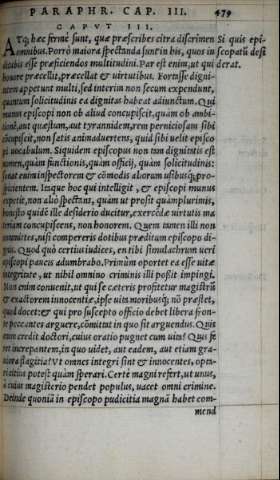 PARAPHR. CAP. III. 479
CAPVT III.
ATq; hæc fermè sunt, quæ præscribes citra discrimen Si quis epi-
omnibus. Porrò maiora spectanda sunt in his, quos in scopatū desi
digitis esse præficiendos multitudini. Par est enim, ut qui derat.
honore præcellit, præcellat & uirtutibus. Fortisse digni-
tatem appetunt multi, sed interim non secum expendunt,
quantum solicitudinis ea dignitas habeat adiunctum. Qui
munus episcopi non ob aliud concupiscit, quàm ob ambi-
tionē, aut quæstum, aut tyrannidem, rem perniciosam sibi
concupiscit, non satis animaduertens, quid sibi uelit episco-
pi uocabulum. Siquidem episcopus non tam dignitatis est
nomen, quàm functionis, quàm officij, quàm solicitudinis:
sonat enim inspectorem & cōmodis aliorum usibusq; pro-
spicientem. Itaque hoc qui intelligit, & episcopi munus
expetit, non aliò spectans, quàm ut prosit quàm plurimis,
honesto quidē ille desiderio ducitur, exercēdæ uirtutis ma
teriam concupiscens, non honorem. Quem tamen illi non
committes, nisi compereris dotibus præditum episcopo di-
gnis. Quod quò certius iudices, en tibi simulachrum ueri
episcopi paucis adumbrabo. Primùm oportet ea esse uitæ
integritate, ut nihil omnino criminis illi possit impingi.
Non enim conuenit, ut qui se cæteris profitetur magistrū
& exactorem innocentiæ, ipse uita moribusq; nō præstet,
quod docet: & qui pro suscepto officio debet libera fron-
te peccantes arguere, cōmittat in quo sit arguendus. Quis
enim credit doctori, cuius oratio pugnet cum uita? Quis fe
ret increpantem, in quo uidet, aut eadem, aut etiam gra-
uiora flagitia? Vt omnes integri sint & innocentes, opta-
ri citius potest quàm sperari. Certè magni refert, ut unus,
à cuius magisterio pendet populus, uacet omni crimine.
Deinde quoniā in episcopo pudicitia magnā habet com-
mend